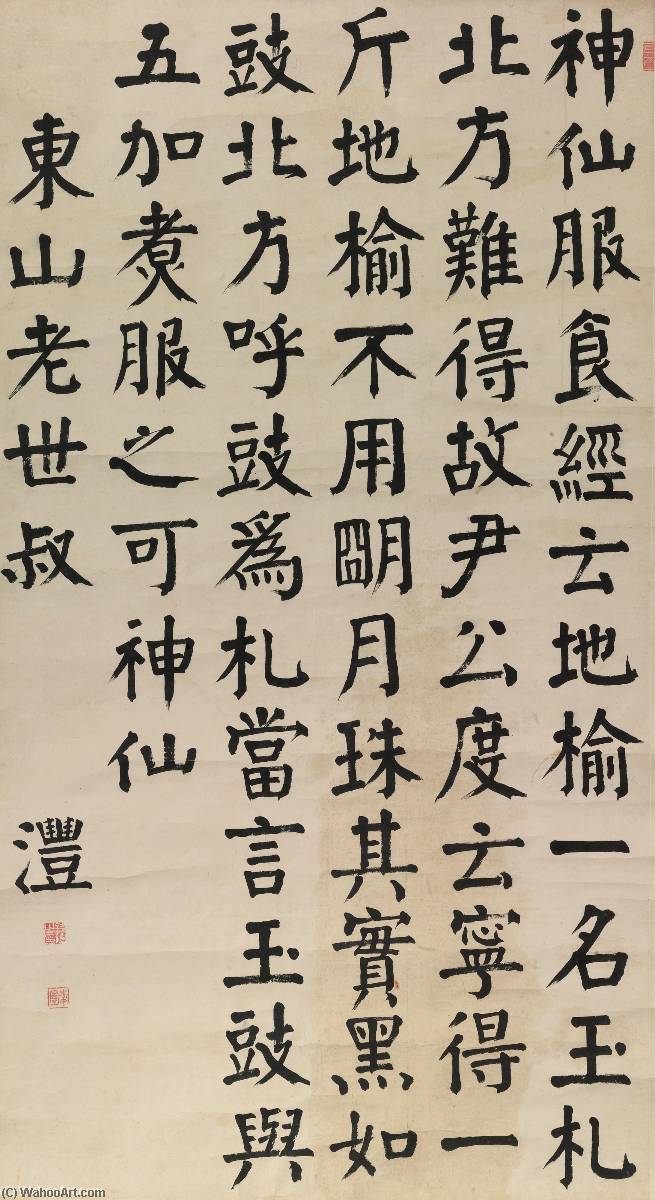 神仙服食經云地榆一名玉札
北方難得故尹公度云寧得一
斤地榆不用朙月珠其實黑如
豉北方呼豉爲札當言玉豉與
五加煑服之可神仙
東山老世叔
灃
(C) WahooArt.com